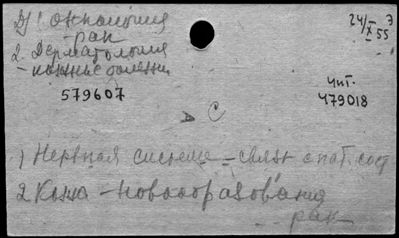 1 Онкология
- рак
2. Дерматология
- кожные болезни
24/X 55
579607
Чит.
479018
С
1) Нервная система - связь с пат. сост
2. Кожа - новообразования
- рак